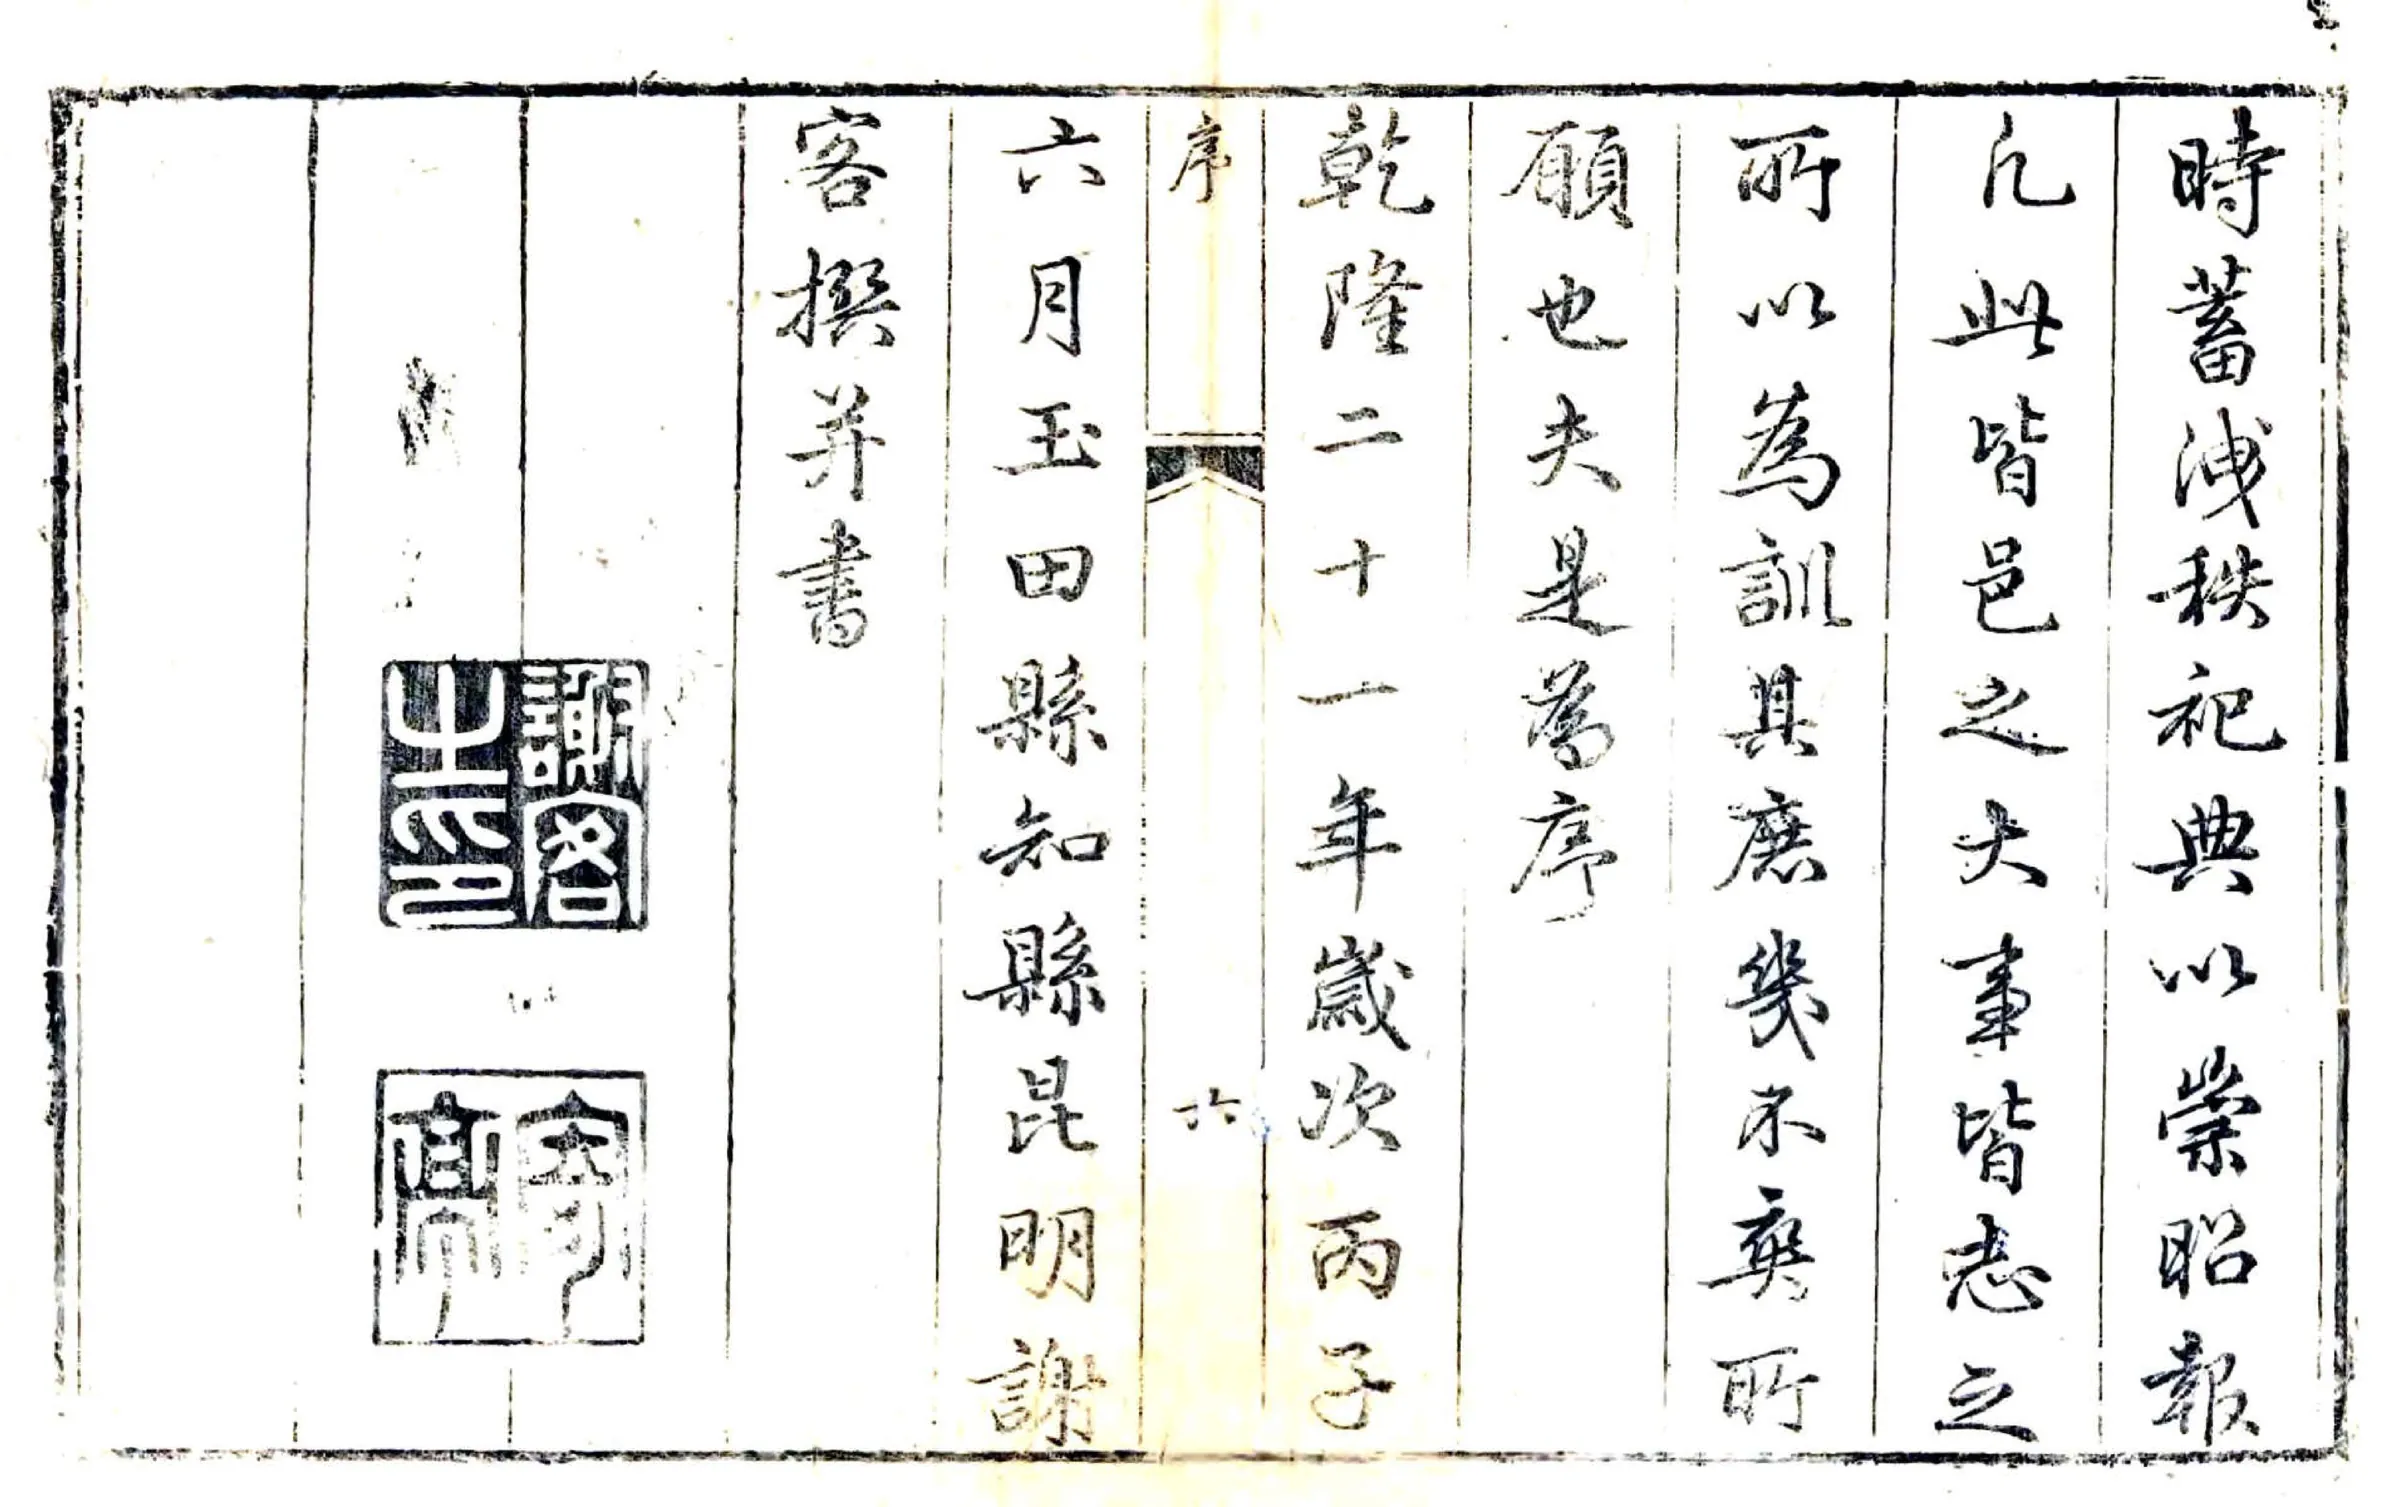 時蓄洩秩祀典以崇昭報
凡此皆邑之大事皆志之
所以為訓其庶幾不奭所
願也夫是為序
乾隆二十一年歲次丙子
序
六月玉田縣知縣昆明謝
客撰并書
謝客之印
寄亭